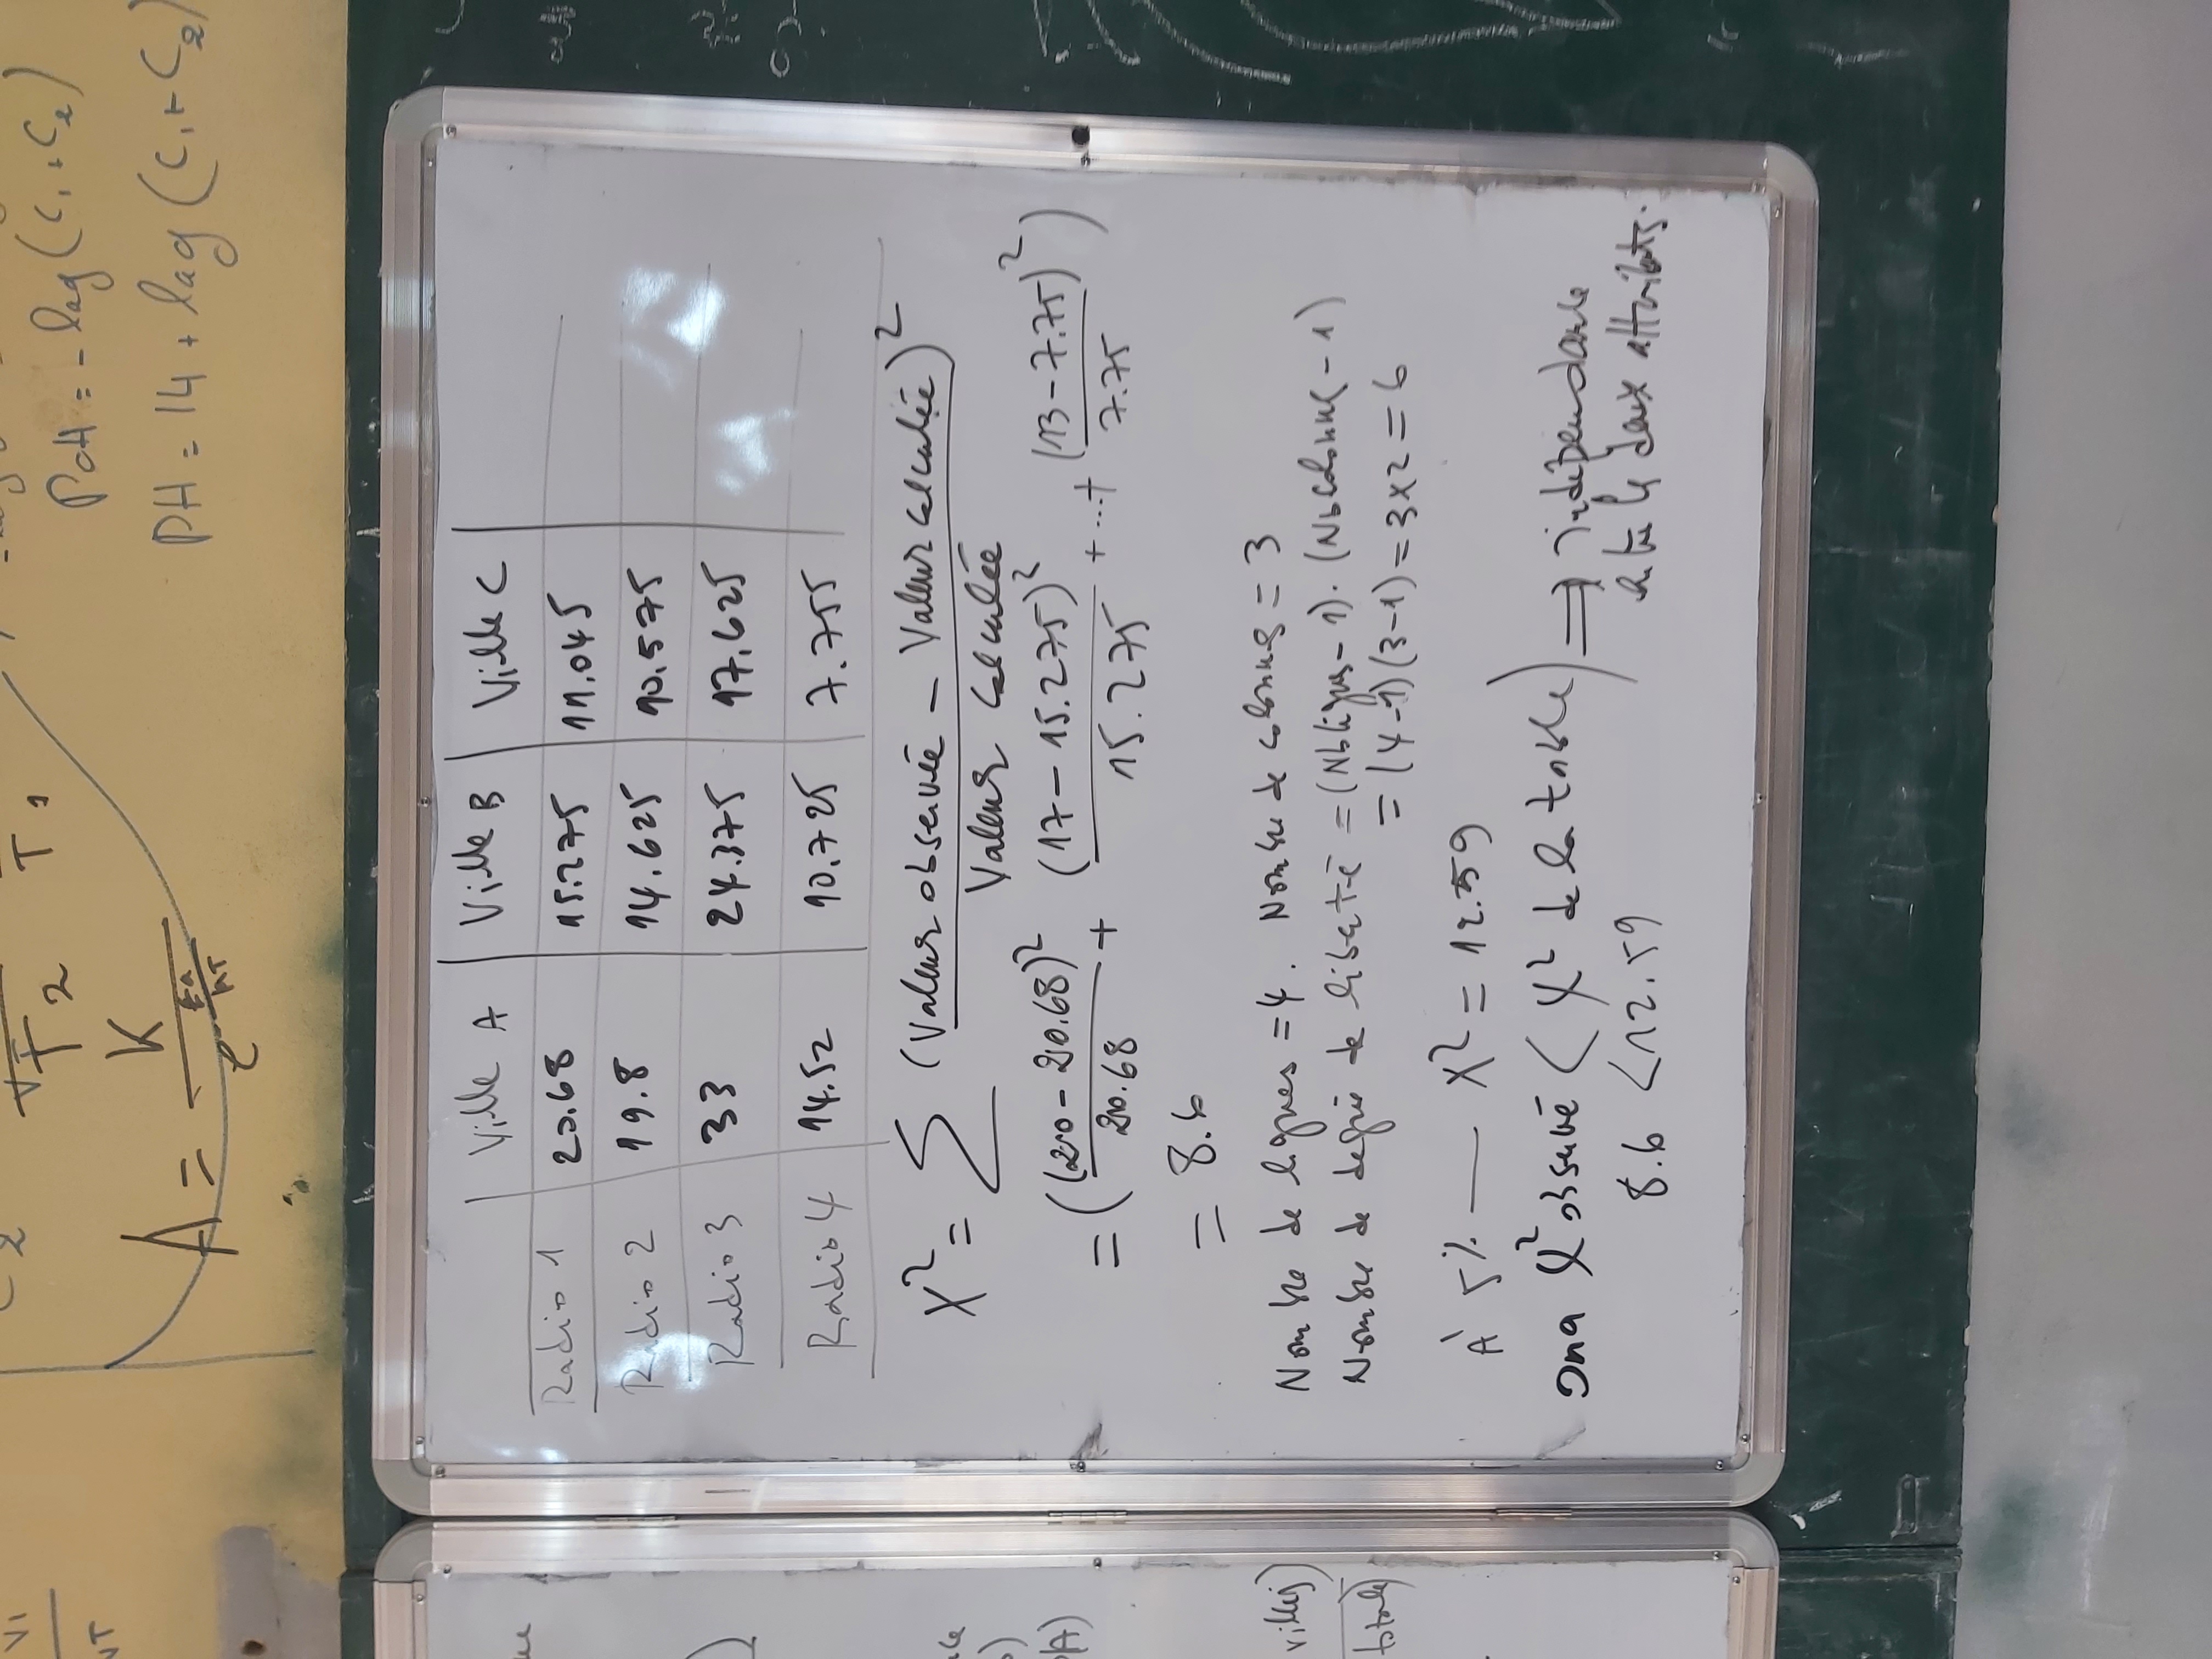 V1
VT
C 2
T 2
T 1
POH = - log (C1 + C2)
A = K / e^-Ea/RT
PH = 14 + log (C1 + C2)
Ville A Ville B Ville C
Radio 1 20.68 15.275 11.045
Radio 2 19.8 14.625 10.575
Radio 3 33 24.375 17.625
Radio 4 14.52 10.725 7.755
X² = Σ (Valeur observée - Valeur calculée)² / Valeur calculée
= ((20 - 20.68)² / 20.68 + (17 - 15.275)² / 15.275 + ... + (13 - 7.75)² / 7.75)
= 8.6
Nombre de lignes = 4. Nombre de colonnes = 3
Nombre de degré de liberté = (Nb lignes - 1). (Nb colonne - 1)
= (4-1)(3-1) = 3x2 = 6
À 5% — X² = 12.59
On a X² observé < X² de la table) ⟹ indépendance
8.6 < 12.59 entre les deux attributs.
villes)
totale)